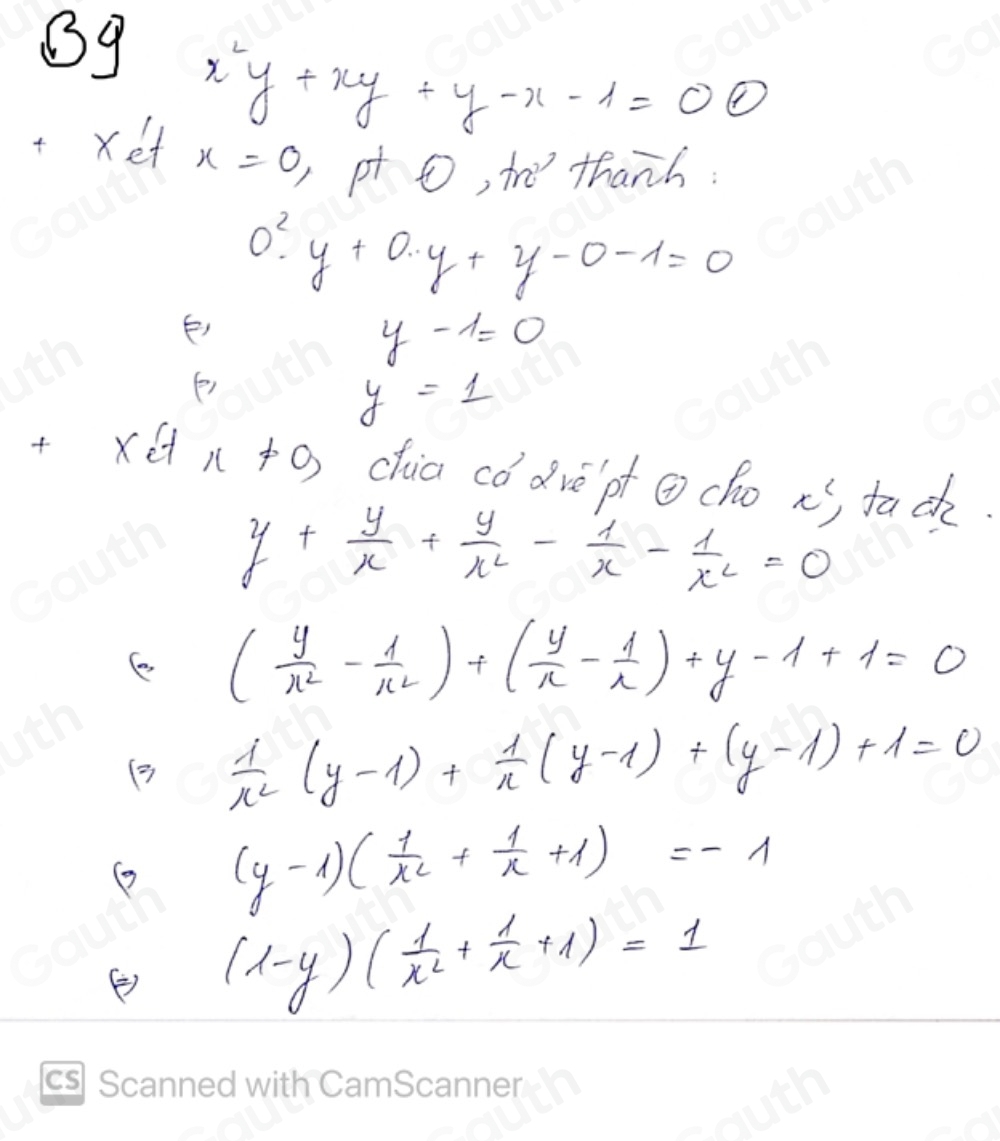 B9
x²y + xy + y - x - 1 = 0 ①
+ Xét x = 0, pt ①, trở thành:
0².y + 0.y + y - 0 - 1 = 0
(=) y - 1 = 0
(=) y = 1
+ Xét x ≠ 0, chia cả 2 vế pt ① cho x², ta đc.
y + y/x + y/x² - 1/x - 1/x² = 0
(=) (y/x² - 1/x²) + (y/x - 1/x) + y - 1 + 1 = 0
(=) 1/x² (y - 1) + 1/x (y - 1) + (y - 1) + 1 = 0
(=) (y - 1)(1/x² + 1/x + 1) = - 1
(=) (1 - y)(1/x² + 1/x + 1) = 1
CS Scanned with CamScanner